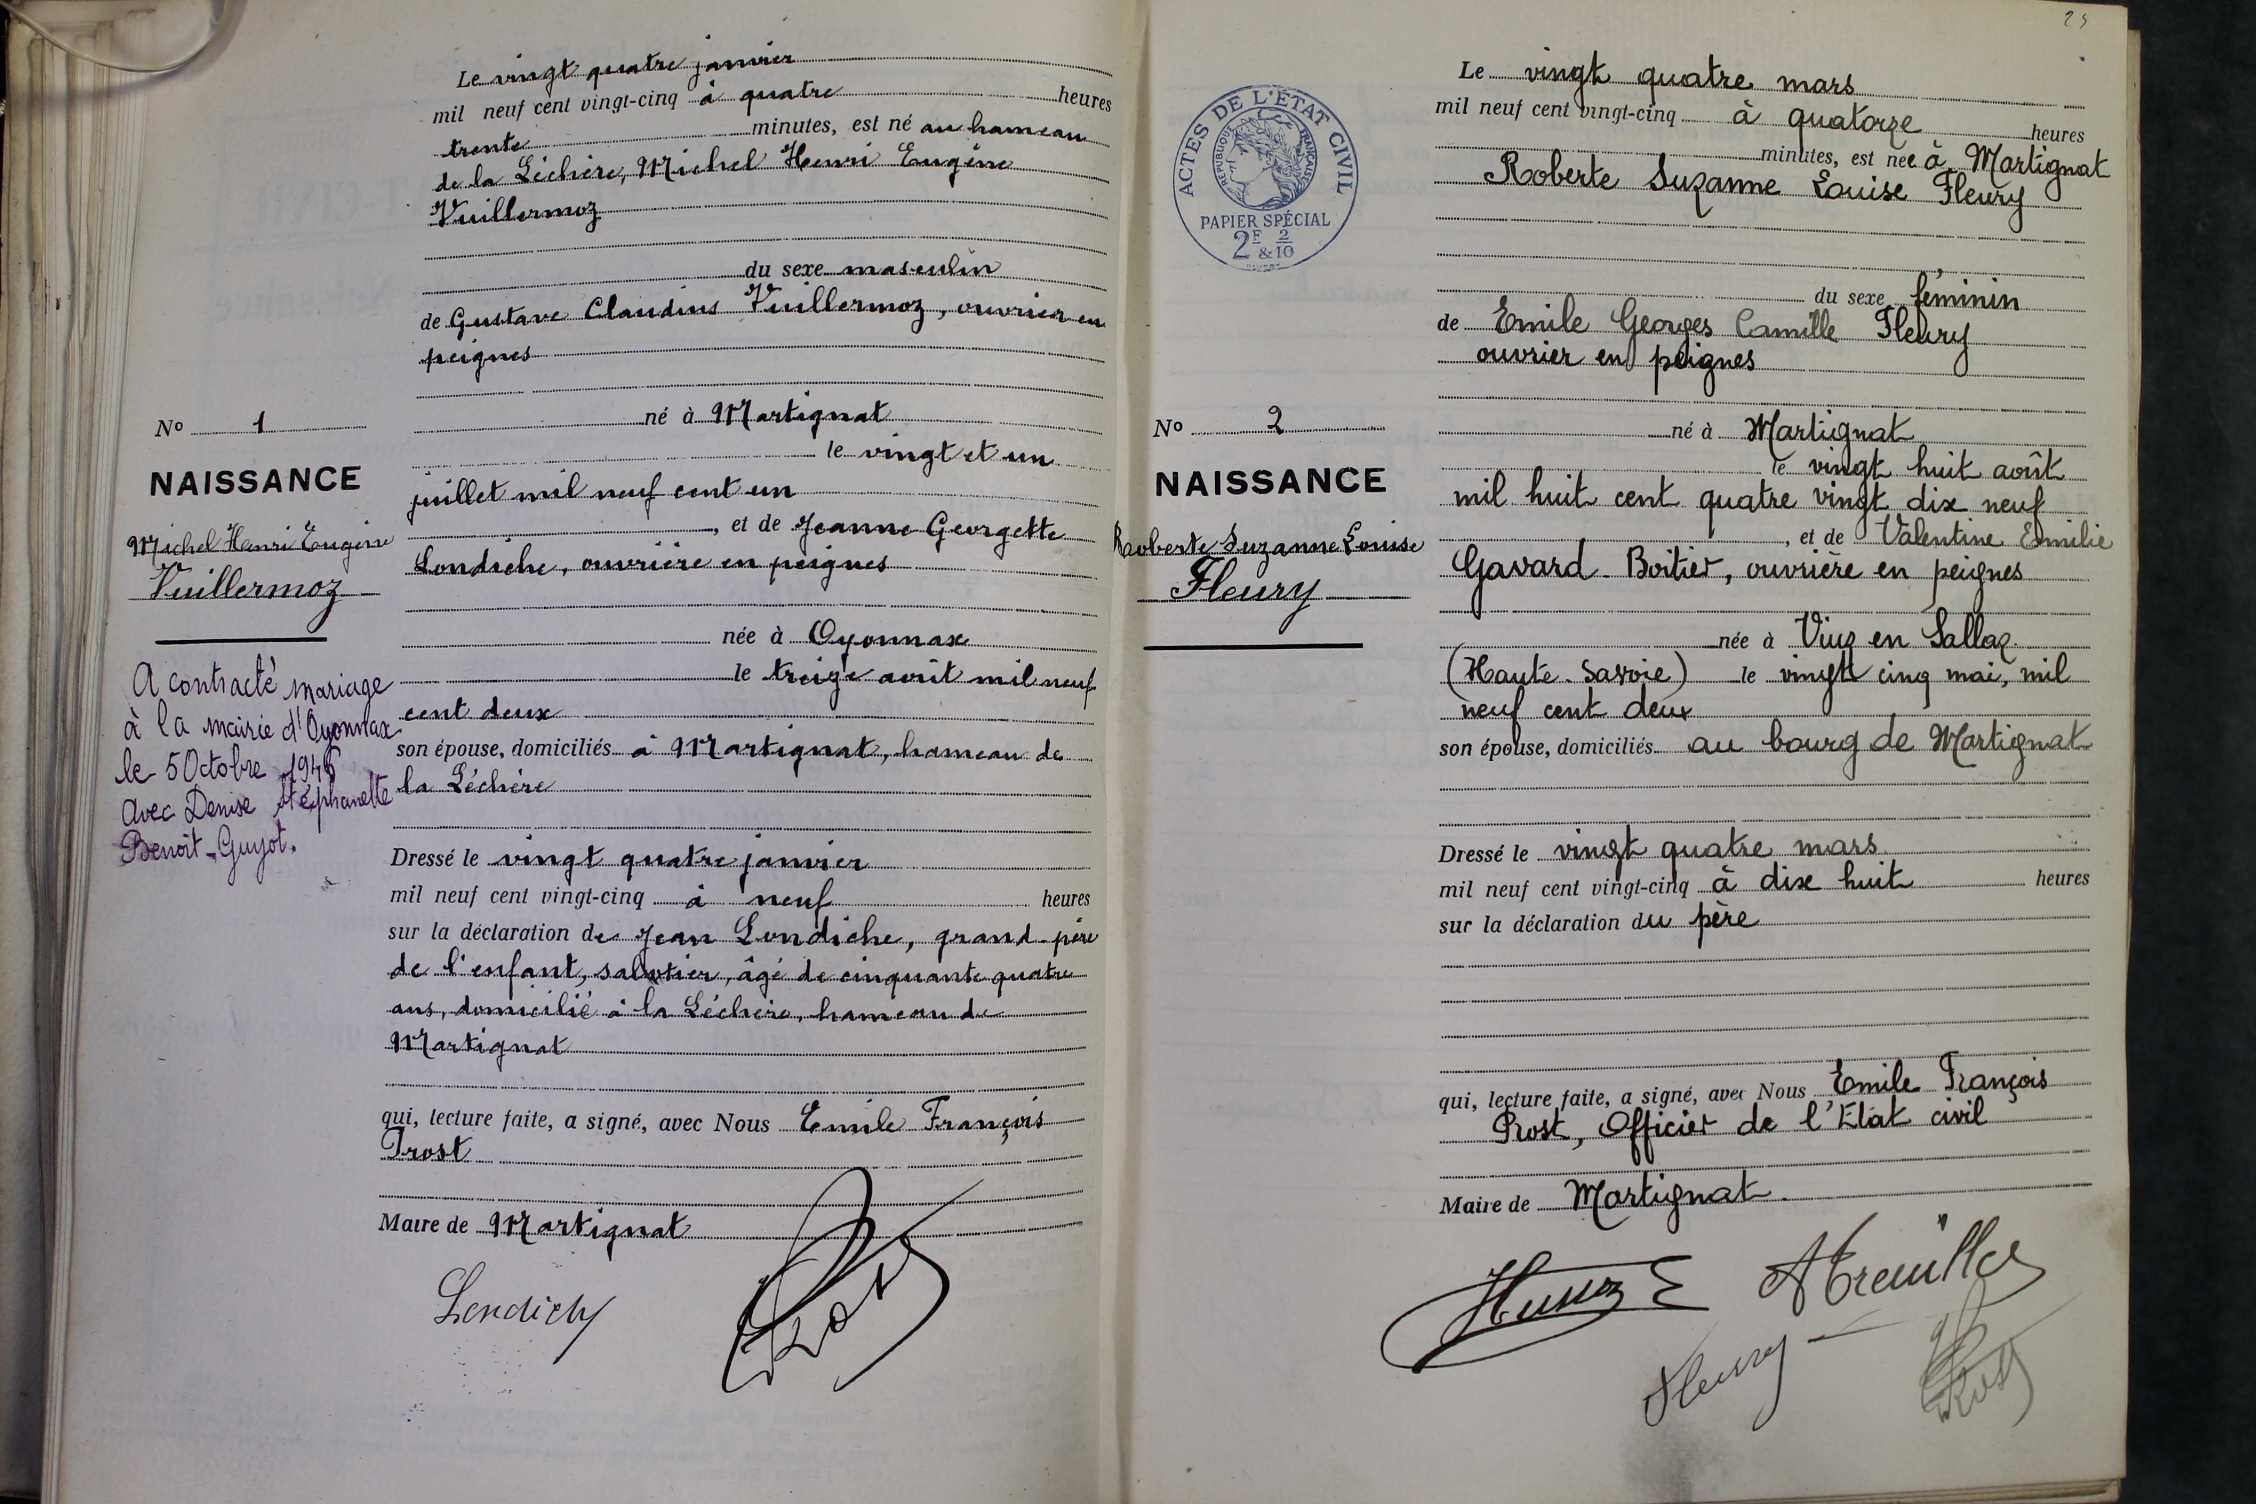 Le vingt quatre janvier
mil neuf cent vingt-cinq à quatre heures
trente minutes, est né au hameau
de la Léchère, Michel Henri Eugène
Vuillermoz
du sexe masculin
de Gustave Claudius Vuillermoz, ouvrier en
peignes
né à Martignat
le vingt et un
juillet mil neuf cent un
, et de Jeanne Georgette
Londiche, ouvrière en peignes
née à Oyonnax
le treize août mil neuf
cent deux
son épouse, domiciliés à Martignat, hameau de
la Léchère
Dressé le vingt quatre janvier
mil neuf cent vingt-cinq à neuf heures
sur la déclaration de Jean Londiche, grand-père
de l'enfant, sabotier, âgé de cinquante quatre
ans, domicilié à la Léchère, hameau de
Martignat
qui, lecture faite, a signé, avec Nous Emile François
Prost
Maire de Martignat
No 1
NAISSANCE
Michel Henri Eugène
Vuillermoz
A contracté mariage
à la mairie d'Oyonnax
le 5 Octobre 1946
avec Denise Stéphanette
Benoit-Guyot.
ACTES DE L'ÉTAT CIVIL
RÉPUBLIQUE FRANÇAISE
PAPIER SPÉCIAL
2F & 2/10
No 2
NAISSANCE
Roberte Suzanne Louise
Fleury
Le vingt quatre mars
mil neuf cent vingt-cinq à quatorze heures
minutes, est née à Martignat
Roberte Suzanne Louise Fleury
du sexe féminin
de Emile Georges Camille Fleury
ouvrier en peignes
né à Martignat
le vingt huit août
mil huit cent quatre vingt dix neuf
, et de Valentine Emilie
Gavard-Boitier, ouvrière en peignes
née à Viuz en Sallaz
(Haute-Savoie) le vingt cinq mai, mil
neuf cent deux
son épouse, domiciliés au bourg de Martignat
Dressé le vingt quatre mars
mil neuf cent vingt-cinq à dix huit heures
sur la déclaration du père
qui, lecture faite, a signé, avec Nous Emile François
Prost, Officier de l'Etat civil
Maire de Martignat.
Fleury
Prost